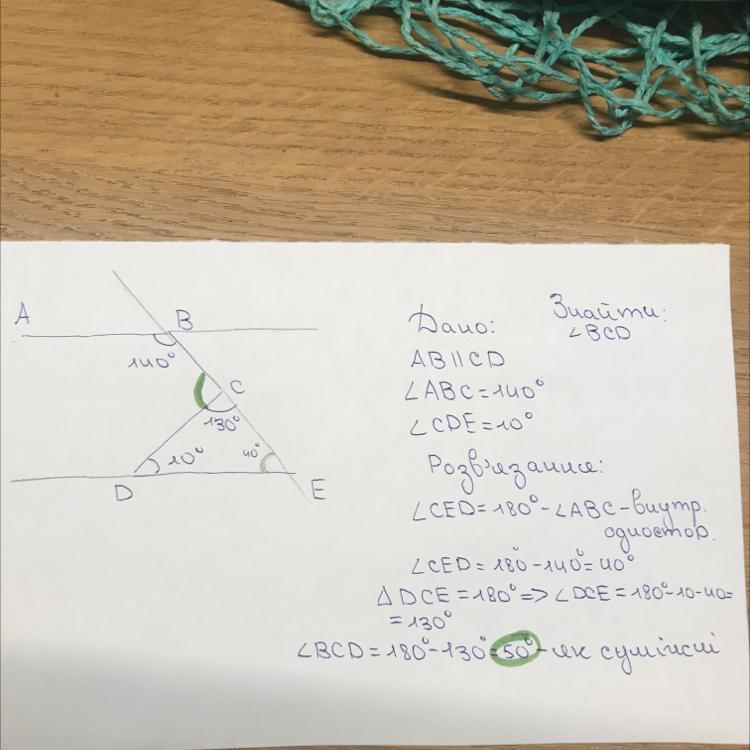 A
B
140°
C
130°
10°
40°
D
E
Дано:
Знайти:
∠BCD
AB || CD
∠ABC = 140°
∠CDE = 10°
Розв'язання:
∠CED = 180° - ∠ABC - внутр.
одностор.
∠CED = 180° - 140° = 40°
△ DCE = 180° => ∠DCE = 180° - 10 - 40 =
= 130°
∠BCD = 180° - 130° = 50° - як суміжні